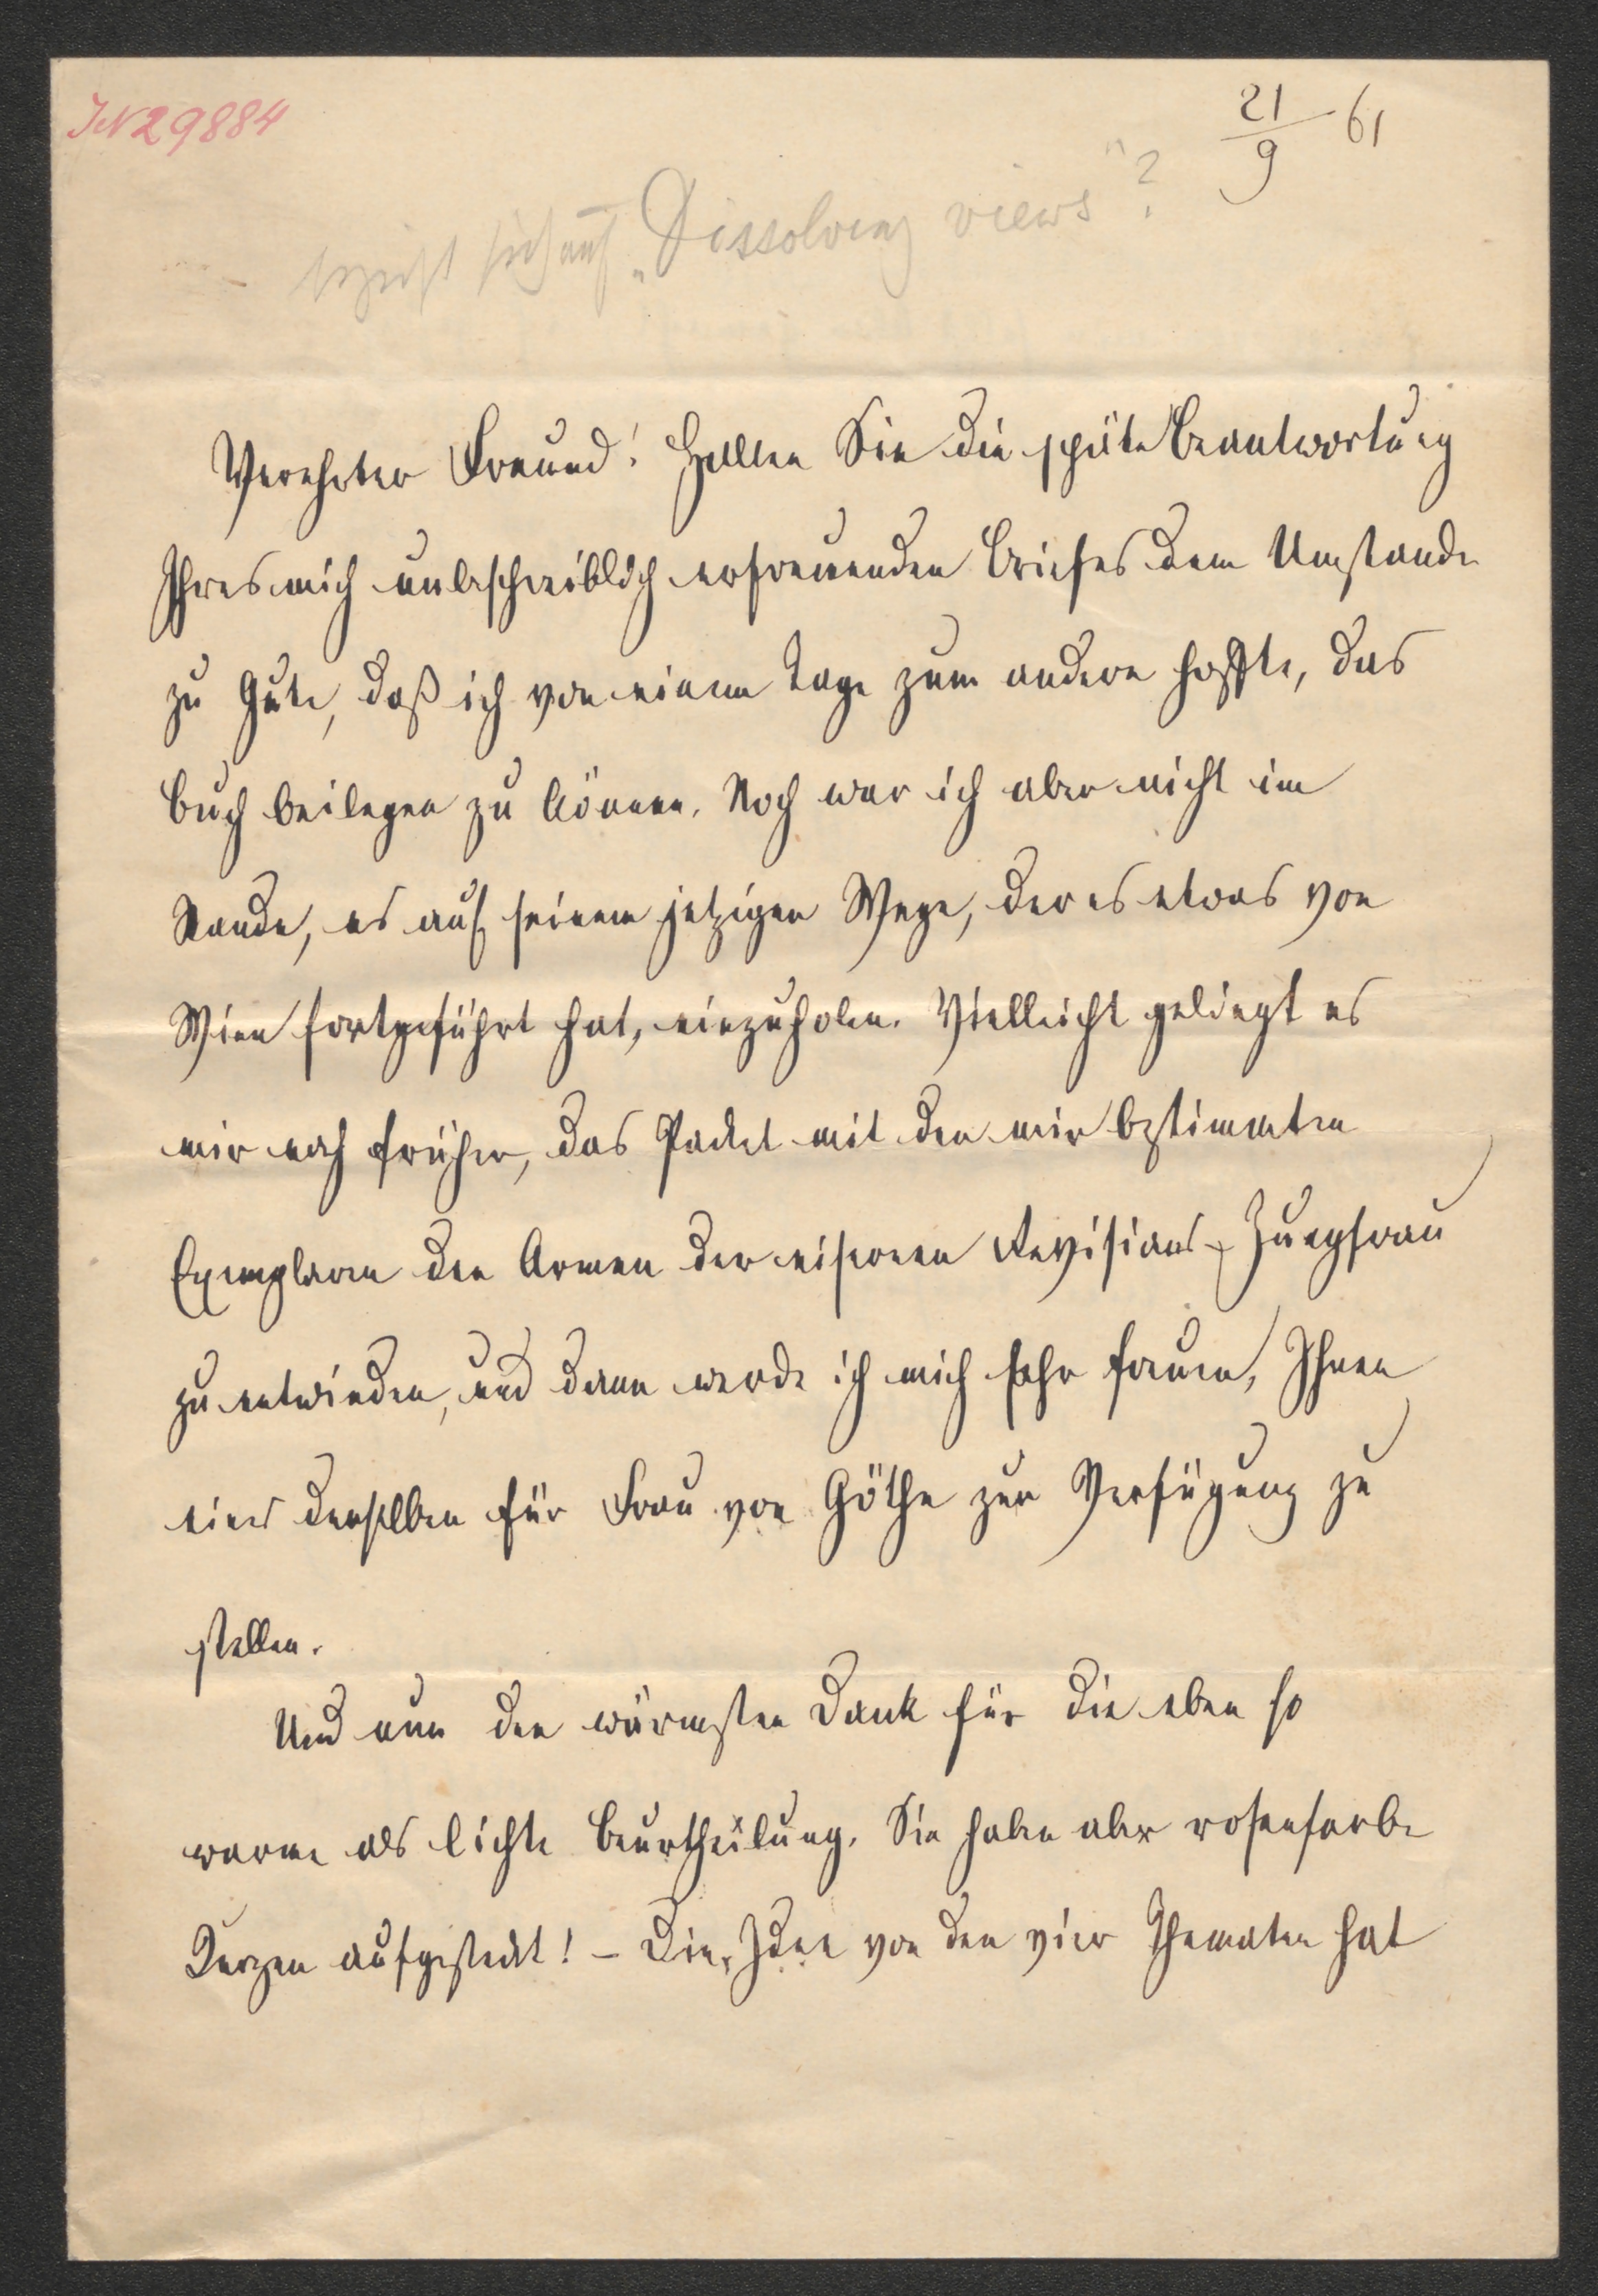 IN 29884
21/9 61
bezieht sich auf „Dissolving views"?
Verehrter Freund! Halten Sie die späte Beantwortung
Ihres mich unbeschreiblich erfreuenden Briefes dem Umstande
zu Gute, daß ich von einem Tage zum andern hoffte, das
Buch beilegen zu können. Noch war ich aber nicht im
Stande, es auf seinem jetzigen Wege, der es etwas von
Wien fortgeführt hat, einzuholen. Vielleicht gelingt es
mir noch früher, das Packet mit den mir bestimmten
Exemplaren den Armen der eisernen Revisions-Jungfrau
zu entwinden, und dann werde ich mich sehr freuen, Ihnen
eines derselben für Frau von Göthe zur Verfügung zu
stellen.
Und nun den wärmsten Dank für die eben so
warme als lichte Beurtheilung. Sie haben aber rosenfarbe
Kerzen aufgesteckt! – Die Idee von den vier Thematen hat